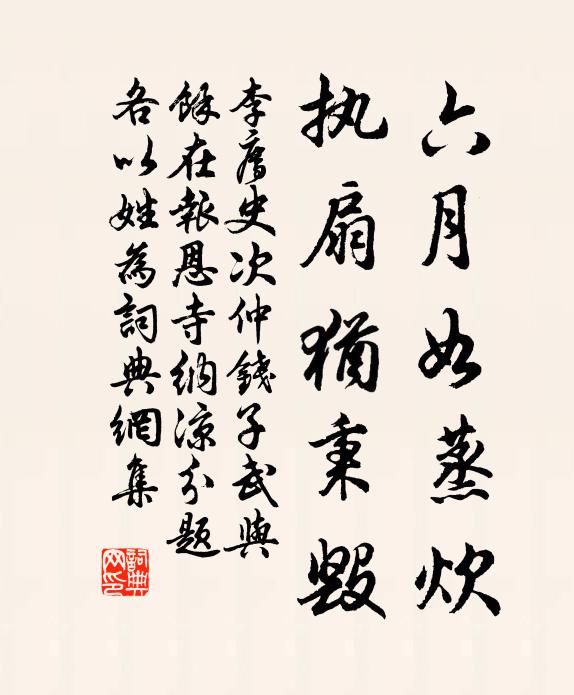 六月如蒸炊
执扇猶秉毁
李膺史次仲錢子武與
餘在報恩寺納涼分題
各以姓為詞典網集
詞典网印